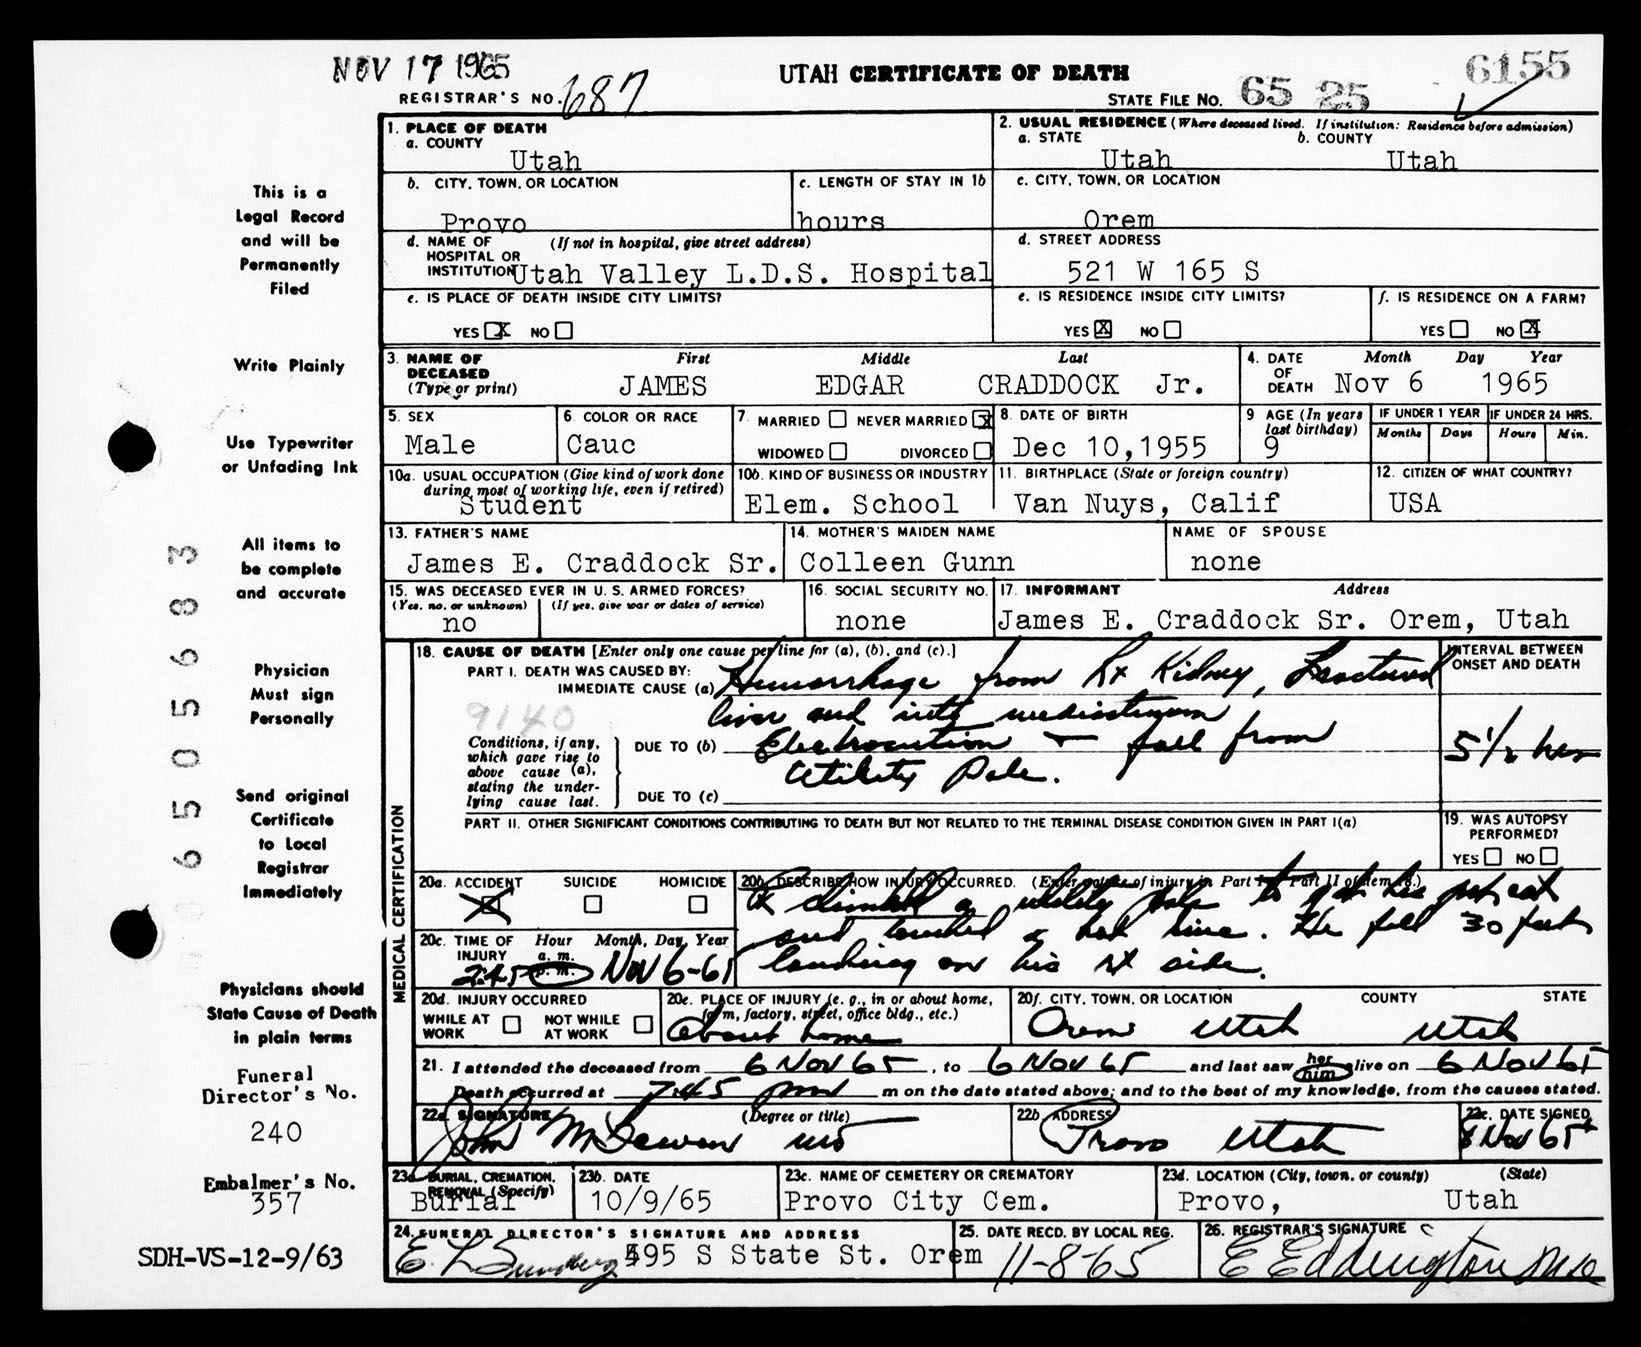 NOV 17 1965
UTAH CERTIFICATE OF DEATH
6155
REGISTRAR'S NO. 687
STATE FILE NO. 65 25
This is a
Legal Record
and will be
Permanently
Filed
Write Plainly
Use Typewriter
or Unfading Ink
All items to
be complete
and accurate
Physician
Must sign
Personally
Send original
Certificate
to Local
Registrar
Immediately
Physicians should
State Cause of Death
in plain terms
Funeral
Director's No.
240
Embalmer's No.
357
SDH-VS-12-9/63
65050683
1. PLACE OF DEATH
a. COUNTY
Utah
2. USUAL RESIDENCE (Where deceased lived. If institution: Residence before admission)
a. STATE
Utah
b. COUNTY
Utah
b. CITY, TOWN, OR LOCATION
Provo
c. LENGTH OF STAY IN 1b
hours
c. CITY, TOWN, OR LOCATION
Orem
d. NAME OF HOSPITAL OR INSTITUTION (If not in hospital, give street address)
Utah Valley L.D.S. Hospital
d. STREET ADDRESS
521 W 165 S
e. IS PLACE OF DEATH INSIDE CITY LIMITS?
YES X NO
e. IS RESIDENCE INSIDE CITY LIMITS?
YES X NO
f. IS RESIDENCE ON A FARM?
YES NO X
3. NAME OF DECEASED (Type or print)
First Middle Last
JAMES EDGAR CRADDOCK Jr.
4. DATE OF DEATH
Month Day Year
Nov 6 1965
5. SEX
Male
6. COLOR OR RACE
Cauc
7. MARRIED NEVER MARRIED X
WIDOWED DIVORCED
8. DATE OF BIRTH
Dec 10,1955
9 AGE (In years last birthday)
9
IF UNDER 1 YEAR
Months Days
IF UNDER 24 HRS.
Hours Min.
10a. USUAL OCCUPATION (Give kind of work done during most of working life, even if retired)
Student
10b. KIND OF BUSINESS OR INDUSTRY
Elem. School
11. BIRTHPLACE (State or foreign country)
Van Nuys, Calif
12. CITIZEN OF WHAT COUNTRY?
USA
13. FATHER'S NAME
James E. Craddock Sr.
14. MOTHER'S MAIDEN NAME
Colleen Gunn
NAME OF SPOUSE
none
15. WAS DECEASED EVER IN U. S. ARMED FORCES?
(Yes, no, or unknown) (If yes, give war or dates of service)
no
16. SOCIAL SECURITY NO.
none
17. INFORMANT Address
James E. Craddock Sr. Orem, Utah
MEDICAL CERTIFICATION
18. CAUSE OF DEATH [Enter only one cause per line for (a), (b), and (c).]
PART I. DEATH WAS CAUSED BY:
IMMEDIATE CAUSE (a) Hemorrhage from Rt Kidney, Fractured
liver and into mediastinum
9140
Conditions, if any, which gave rise to above cause (a), stating the underlying cause last.
DUE TO (b) Electrocution + fall from
utility Pole.
DUE TO (c)
INTERVAL BETWEEN ONSET AND DEATH
5 1/2 hrs
PART II. OTHER SIGNIFICANT CONDITIONS CONTRIBUTING TO DEATH BUT NOT RELATED TO THE TERMINAL DISEASE CONDITION GIVEN IN PART I(a)
19. WAS AUTOPSY PERFORMED?
YES NO
20a. ACCIDENT X SUICIDE HOMICIDE
20b. DESCRIBE HOW INJURY OCCURRED. (Enter nature of injury in Part I or Part II of item 18.)
climbed a utility pole to get his pet cat
and touched a hot line. He fell 30 feet
landing on his rt side.
20c. TIME OF INJURY
Hour a. m. p. m. Month, Day, Year
2:45 Nov 6-65
20d. INJURY OCCURRED
WHILE AT WORK NOT WHILE AT WORK
20e. PLACE OF INJURY (e. g., in or about home, farm, factory, street, office bldg., etc.)
about home
20f. CITY, TOWN, OR LOCATION COUNTY STATE
Orem Utah Utah
21. I attended the deceased from 6 Nov 65, to 6 Nov 65 and last saw her him alive on 6 Nov 65
Death occurred at 7:45 pm m on the date stated above; and to the best of my knowledge, from the causes stated.
22a. SIGNATURE (Degree or title)
John M Bowen MD
22b ADDRESS
Provo Utah
22c. DATE SIGNED
8 Nov 65
23a BURIAL, CREMATION, REMOVAL (Specify)
Burial
23b. DATE
10/9/65
23c. NAME OF CEMETERY OR CREMATORY
Provo City Cem.
23d. LOCATION (City, town, or county) (State)
Provo, Utah
24. FUNERAL DIRECTOR'S SIGNATURE AND ADDRESS
E L Sundberg 495 S State St. Orem
25. DATE RECD. BY LOCAL REG.
11-8-65
26. REGISTRAR'S SIGNATURE
E Eddington